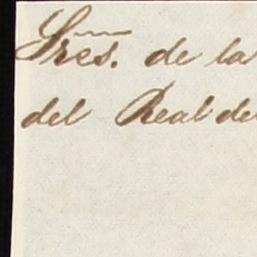 Sres. de la
del Real de